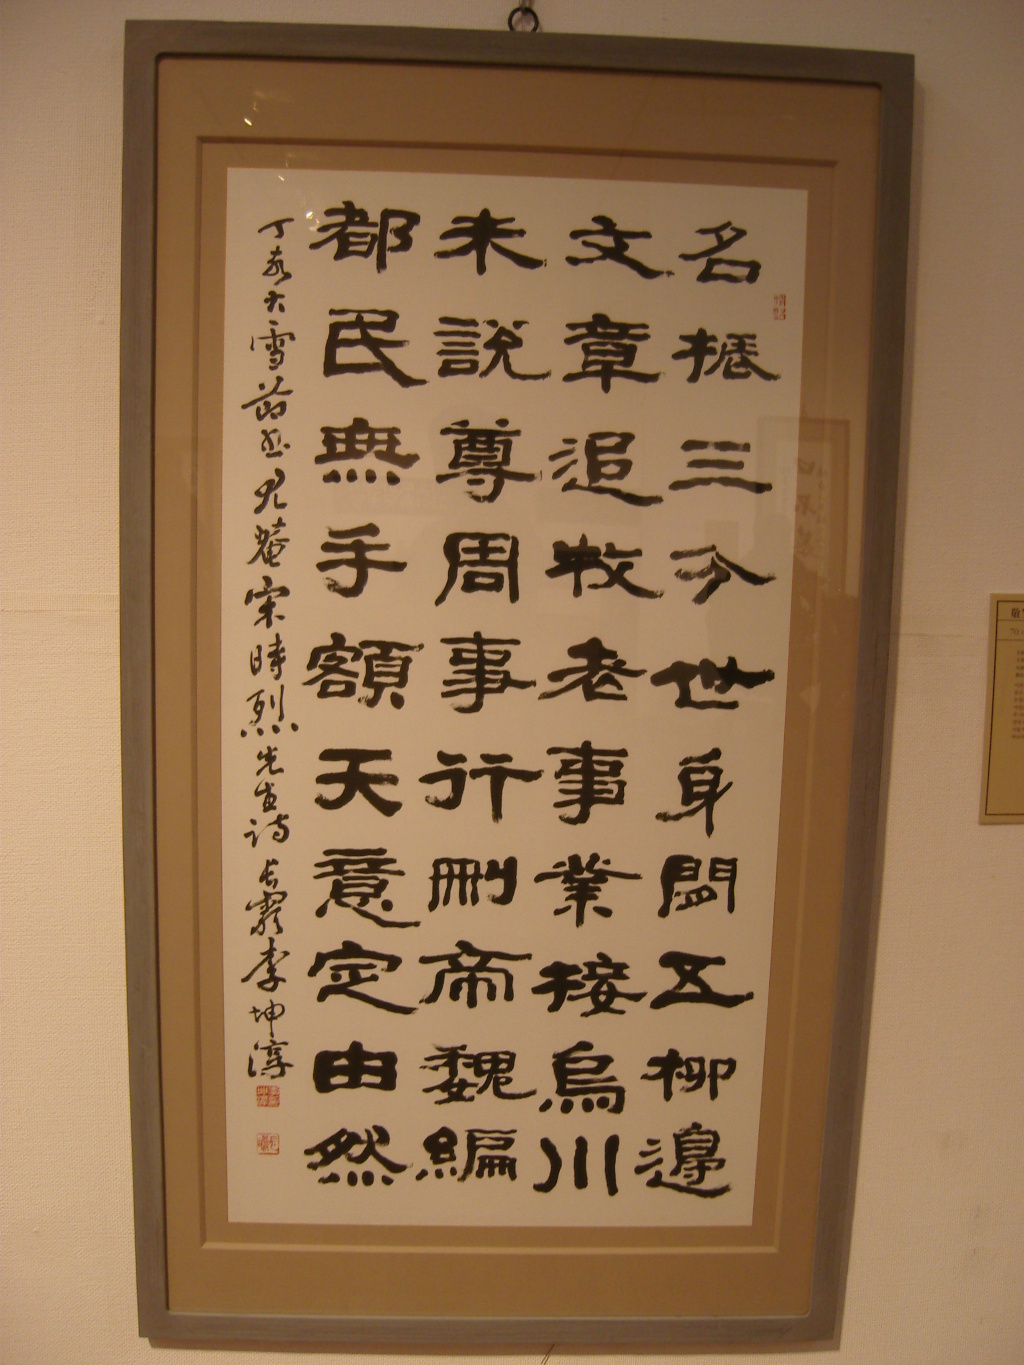 名三分世身五柳邊
文章追牧老事業接烏川
未說尊周事行刪帝魏編
都民無手額天意定由然
丁亥大雪節書尤菴宋時烈先生詩李坤淳